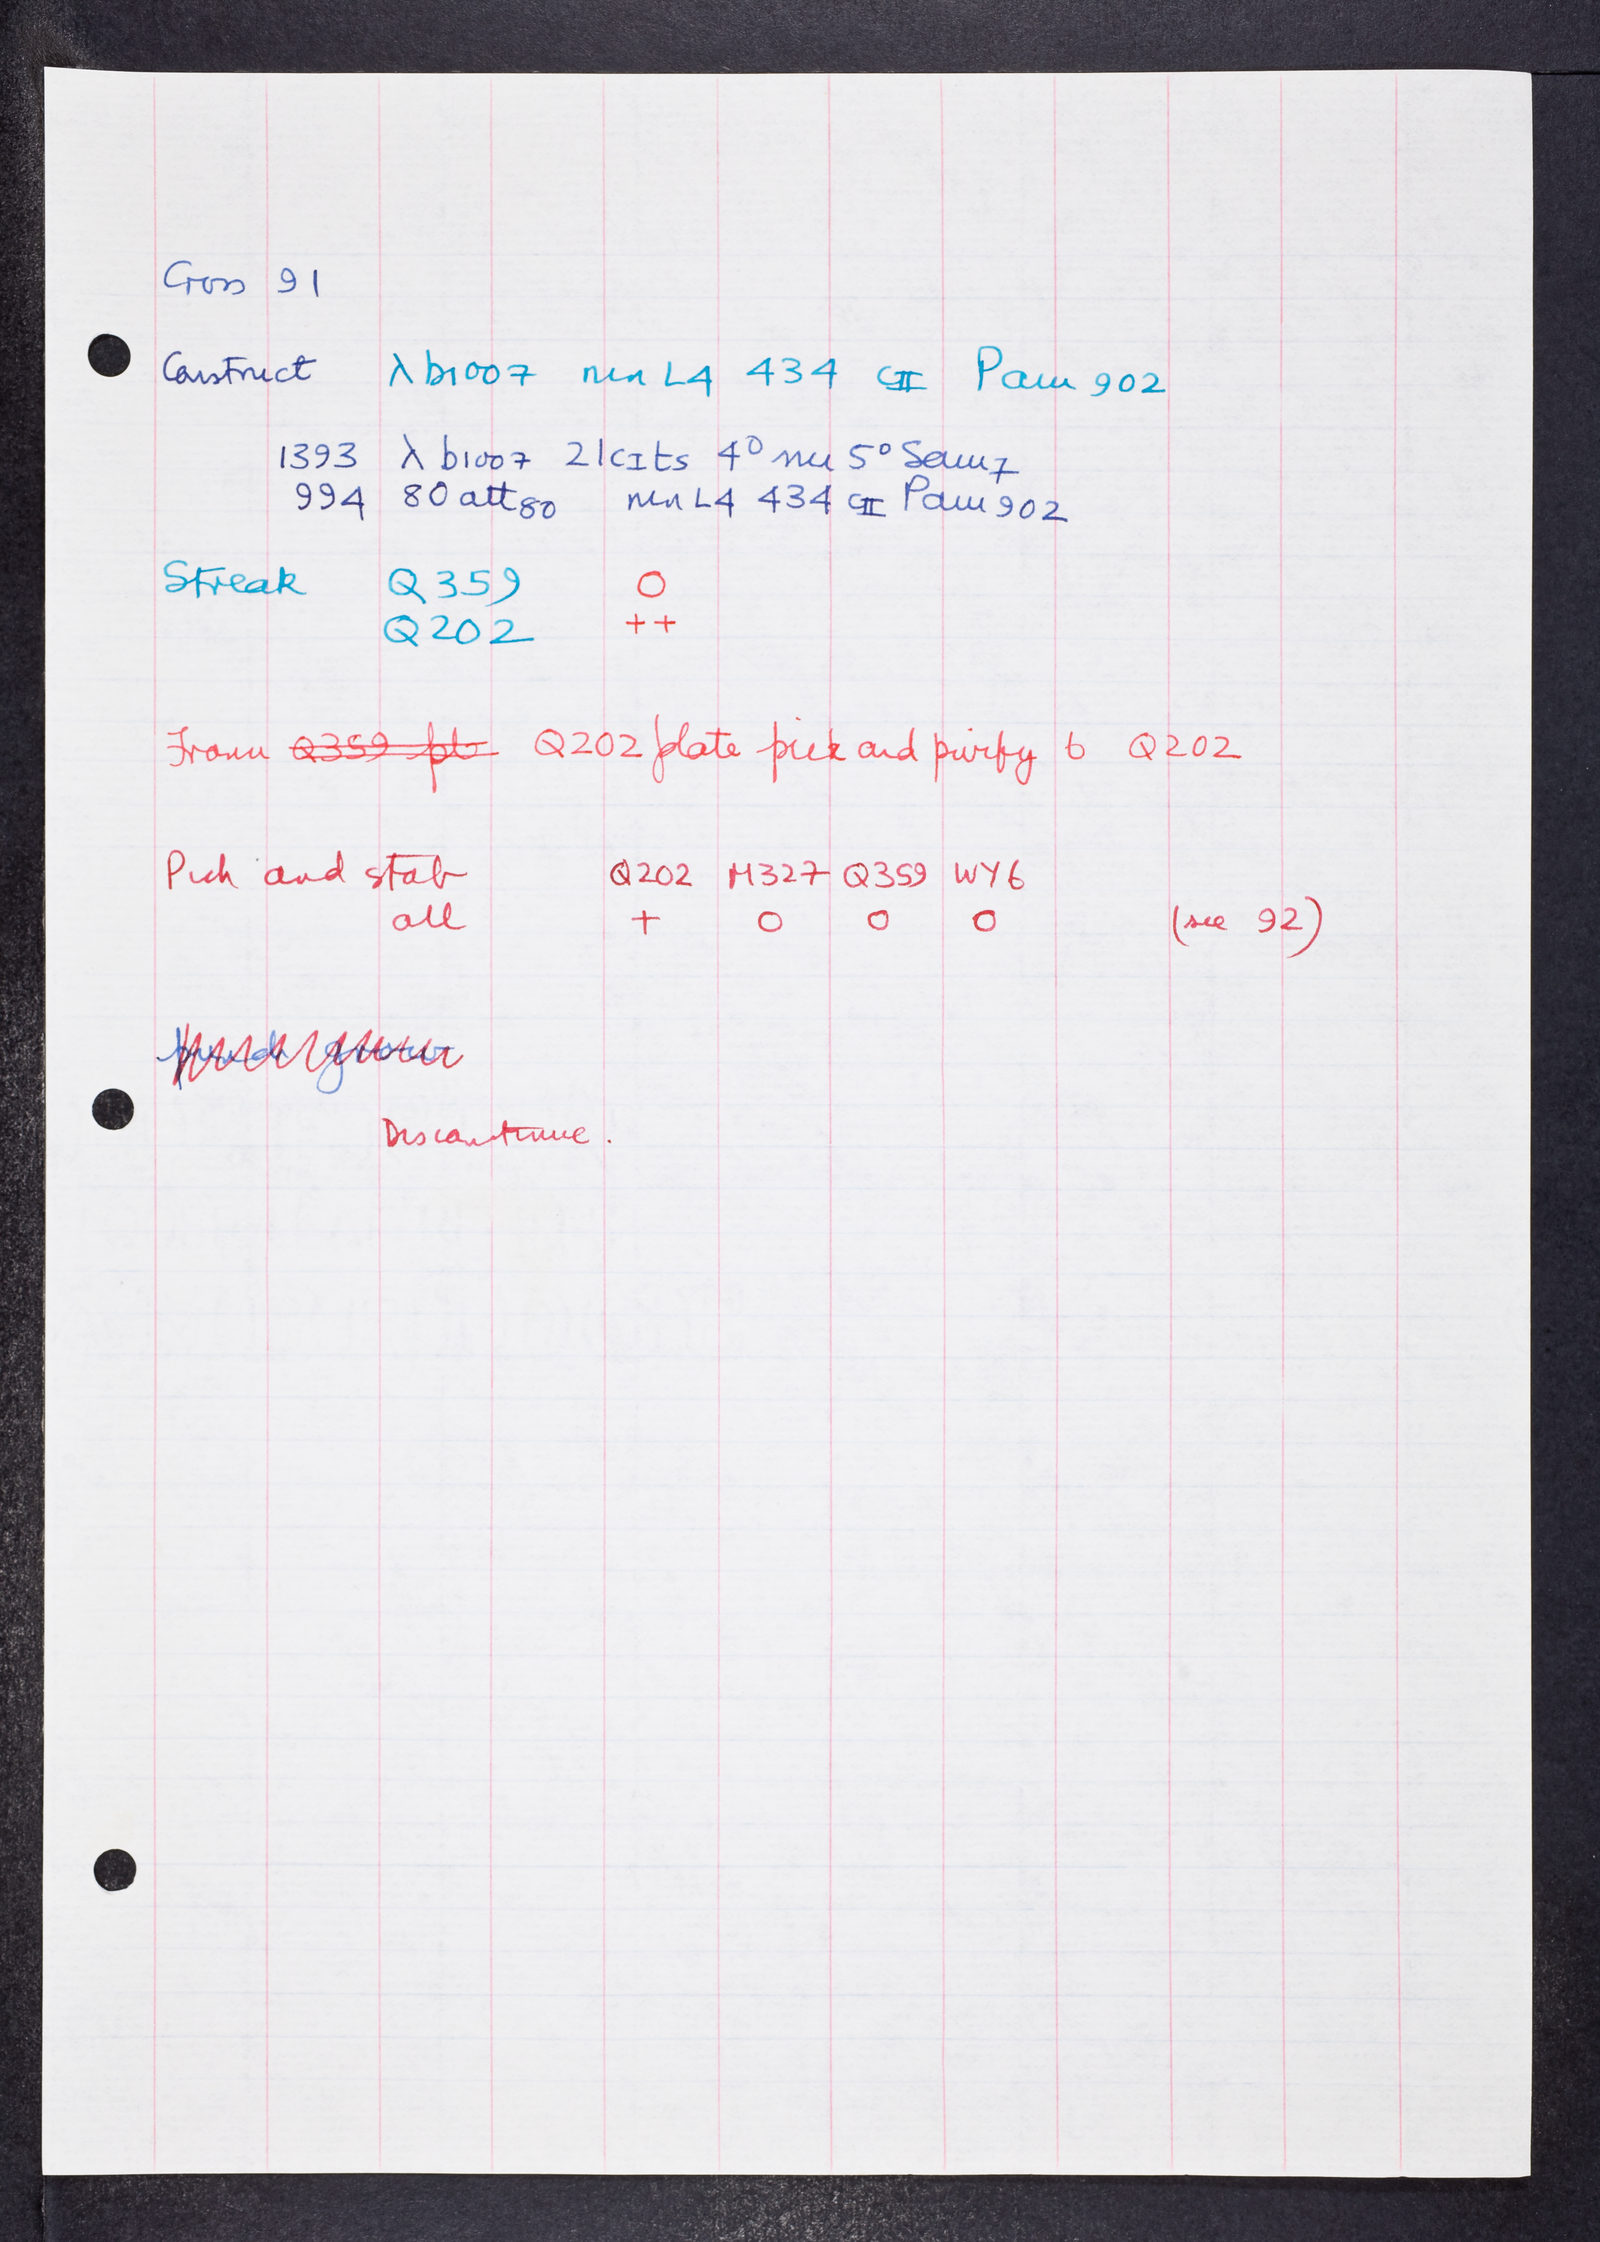 Cross 91
Construct λ b1007 nin L4 434 cII Pam 902
1393 λ b1007 21cIts 4° nin 5° Sam7
994 80 att80 nin L4 434 cII Pam 902
Streak Q359 O
Q202 ++
From Q359 pl Q202 plate pick and purify to Q202
Pick and stab Q202 M327 Q359 WY6
all + O O O (see 92)
Discontinue.